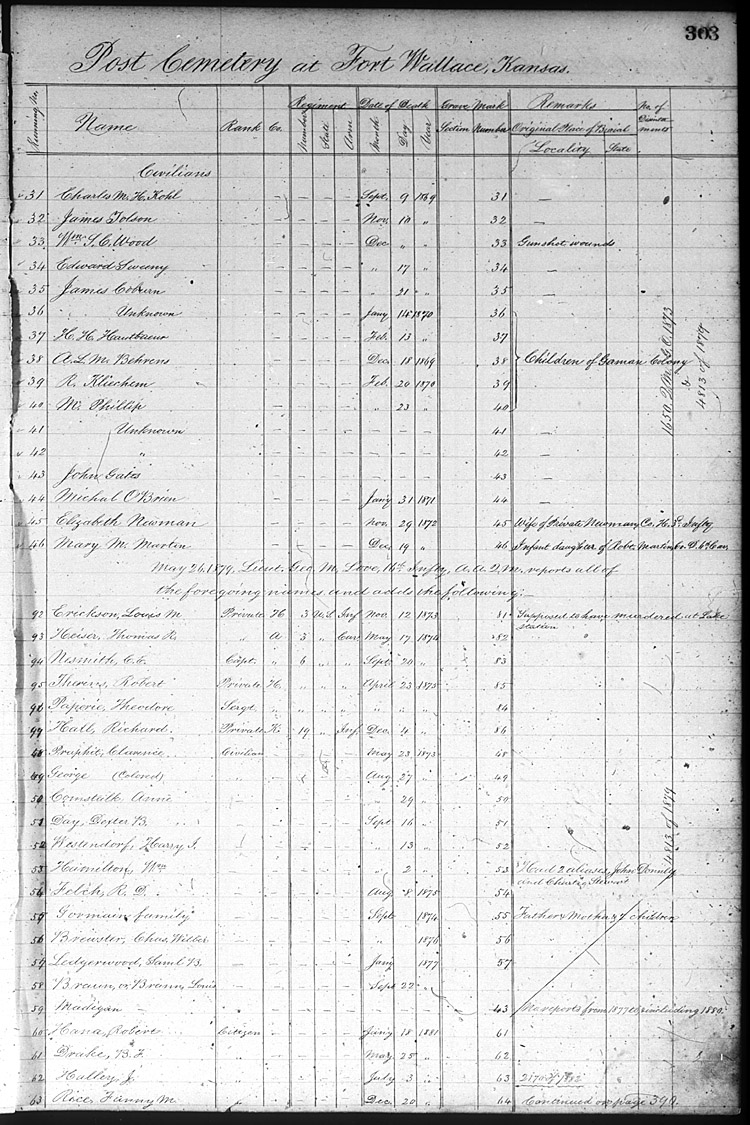 303
Post Cemetery at Fort Wallace, Kansas.
Running No. Name Rank Co. Regiment Number State Arm Date of Death Month Day Year Grave Mark Section Number Remarks Original Place of Burial Locality State No. of
Civilians
31 Charles M. H. Kohl — — — — — Sept. 9 1869 31 —
32 James Tolson — — — — — Nov. 10 „ 32 —
33 Wm S. C. Wood — — — — — Dec „ „ 33 Gunshot wounds
34 Edward Sweeny — — — — — „ 17 „ 34 —
35 James Coburn — — — — — „ 21 „ 35 —
36 Unknown — — — — — Jany 1870 36
37 H. H. — — — — — Feb. 13 „ 37
38 A. L. M. Behrens — — — — — Dec. 18 1869 38 Children of Gaman Colony
39 R. Kliechem — — — — — Feb. 20 1870 39
40 M. Phillip — — — — — „ 23 „ 40
1650. Q. M. G. O. 1873
&
4813 of 1879
41 Unknown — — — — — 41 —
42 „ — — — — — 42 —
43 John Gates — — — — — 43 —
44 Michal O'Brien — — — — — Jany 31 1871 44 —
45 Elizabeth Newman — — — — — Nov. 29 1872 45 Wife of Private Newman, Co. H. Infty
46 Mary M. Martin — — — — — Dec. 19 „ 46 Infant daughter of Robt. Martin Co. D. 6th Cav.
May 26, 1879, Lieut. Geo. M. Love, 16th Infty, A. A. Q. M. reports all of
the foregoing names and adds the following:—
92 Erickson, Louis M. Private H. 3 U.S. Inf Nov. 12 1873 81 Supposed to have murdered at Lake
station
93 Heiser, Thomas R. „ A 3 „ Cav. May 17 1874 82 „
94 Nesmith, C. C. Capt. „ 6 „ „ Sept. 20 „ 83
95 Robert Private H. „ „ „ April 23 1875 85
96 Paperie, Theodore Sergt. „ „ „ „ „ „ „ 84
97 Hall, Richard. Private K. 19 „ Inf. Dec. 4 „ 86
48 Prophit, Clarence Civilian — — — — May 23 1873 48
49 George (Colored) „ — — — — Aug 27 „ 49
50 Comstalk, Annie — — — — — 29 „ 50
51 Day, Dexter B. — — — — — Sept 16 „ 51
52 Westendorf, Harry J. — — — — — „ 13 „ 52
53 Hamilton, Wm — — — — — „ 2 „ 53 Had 2 aliases, John Donnelly
and Charlie Stewart
4813 of 1879
54 Felch, R. D. — — — — — Aug 8 1875 54
55 Germain family — — — — — Sept 1874 55 Father, Mother & 7 children
56 Brewster, Chas. Wilber — — — — — „ 1876 56
57 Ledgerwood, Saml. B. — — — — — Jany 1877 57
58 Braun, or Brann, Louis — — — — — Sept 22 „
59 Madigan — — — — — 43 No reports from 1877 to, including 1880.
60 Hana, Robert Citizen — — — — Jany 18 1881 61
61 Drake, B. F. „ — — — — May 25 „ 62
62 Halley, J. „ — — — — July 3 „ 63 2170 of 1882
63 Rice, Fanny M. „ — — — — Dec. 20 „ 64 Continued on page 390.